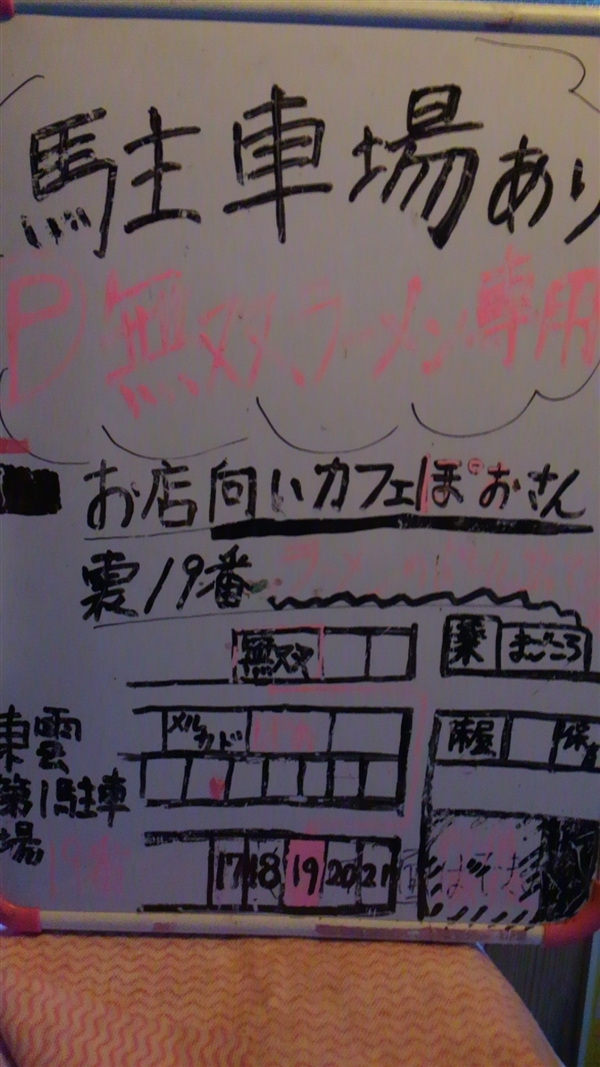 駐車場あり
P 無双ラーメン専用
お店向いカフェぽおさん
裏19番
無双
薬 まごころ
メルカド
東雲
第1駐車
場
17 18 19 20 21